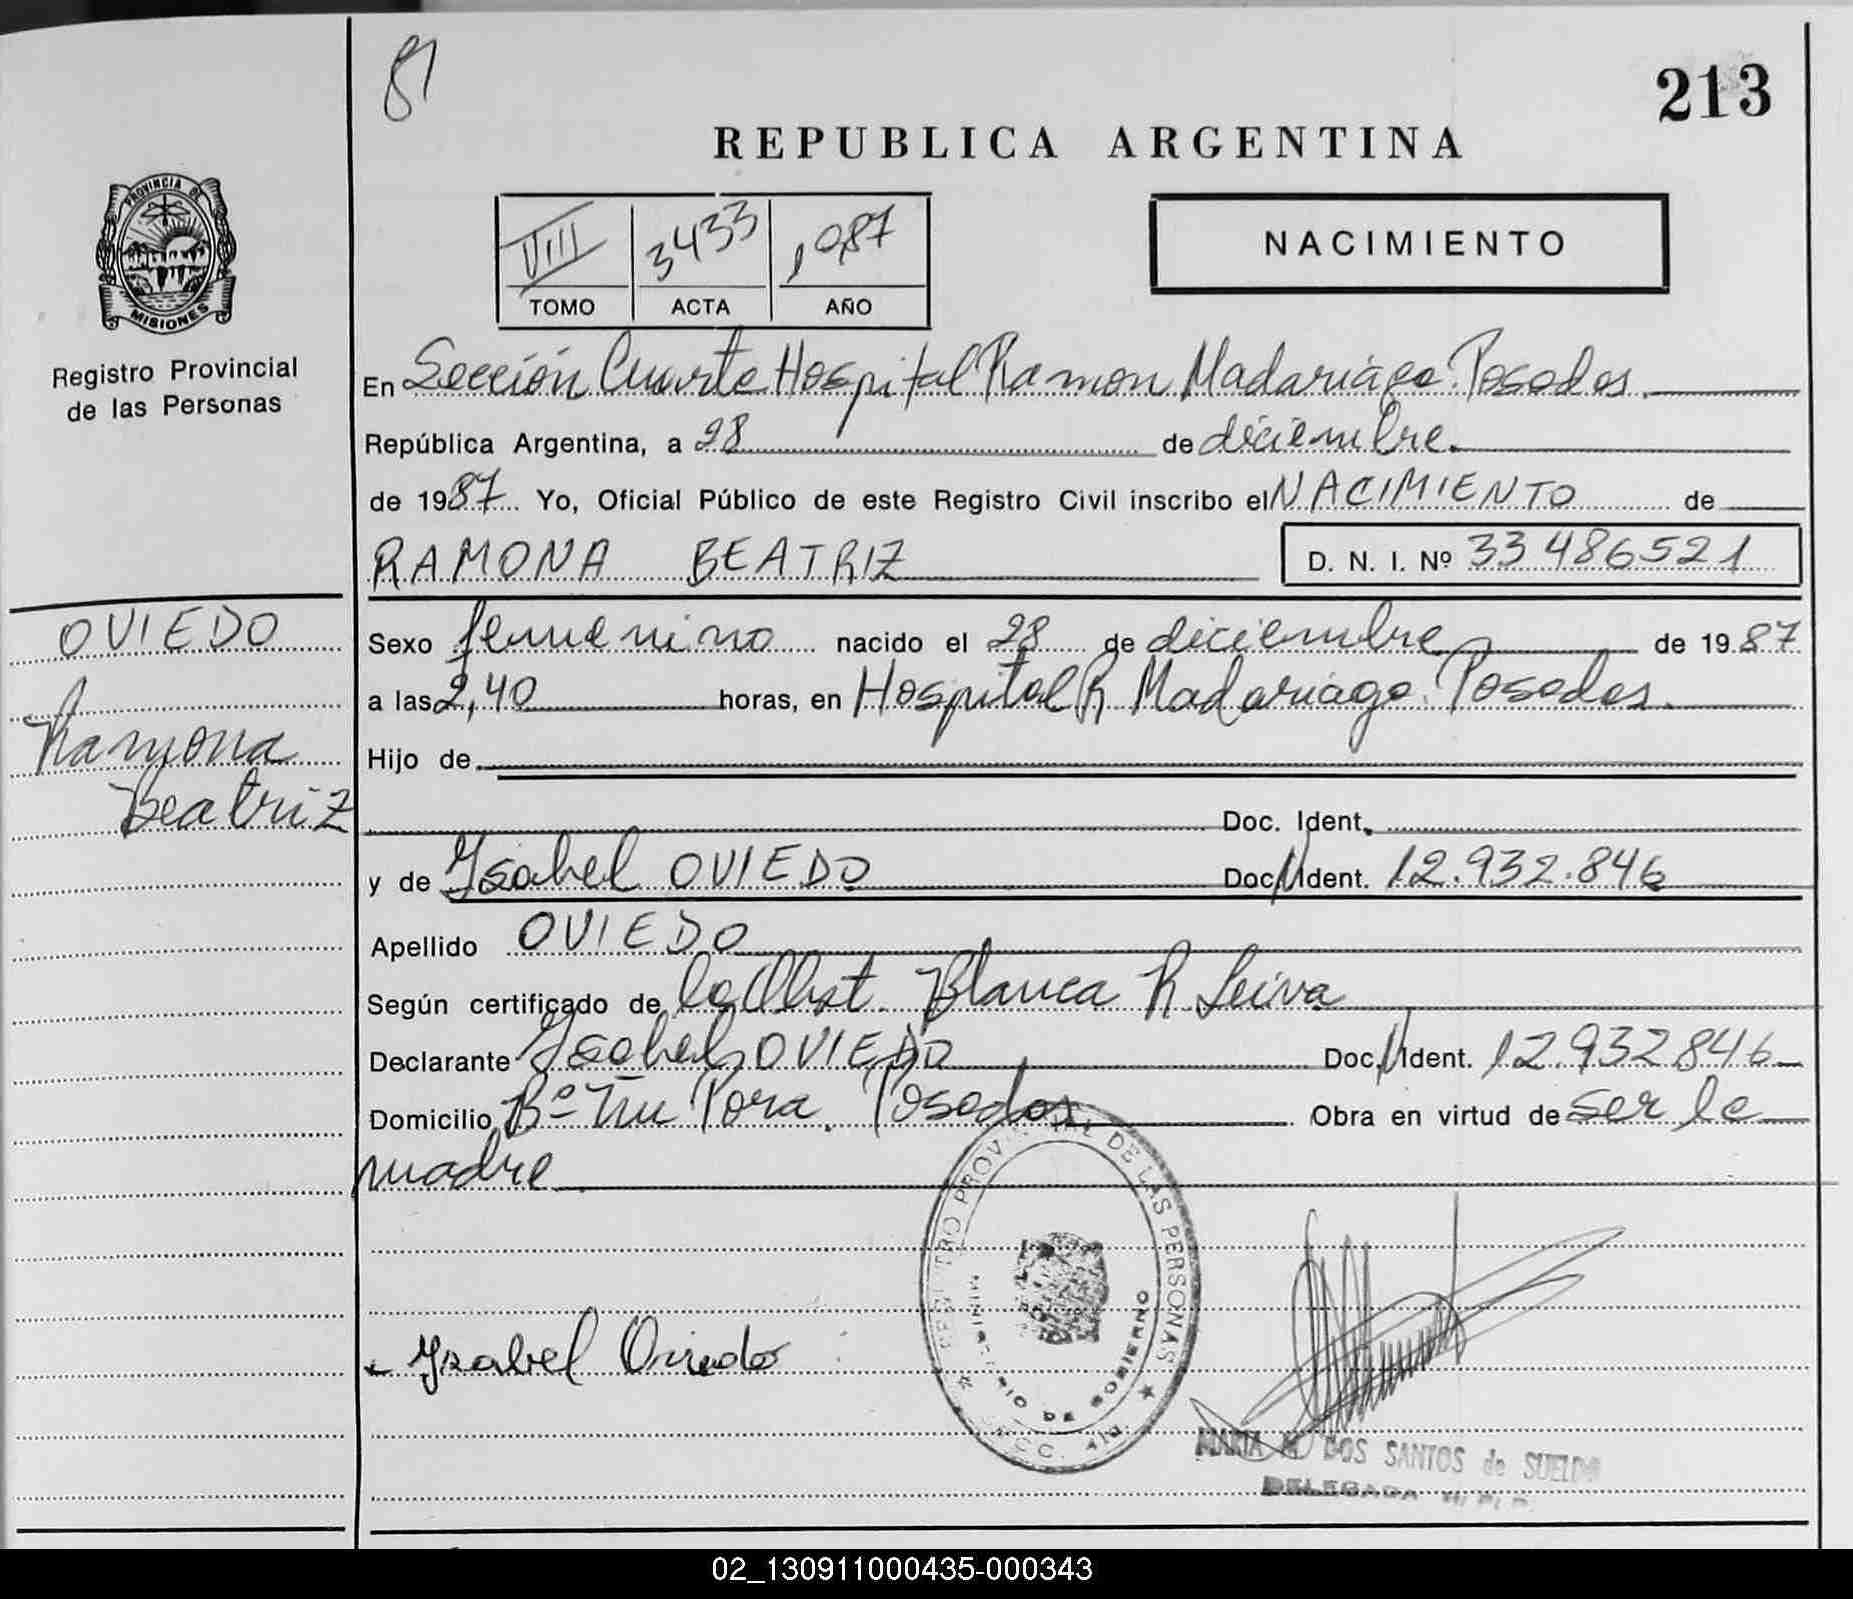 81
213
REPUBLICA ARGENTINA
VIII 3433 1987
TOMO ACTA AÑO
NACIMIENTO
PROVINCIA DE
MISIONES
Registro Provincial
de las Personas
En Sección Cuarta Hospital Ramon Madariaga. Posadas.
República Argentina, a 28 de diciembre.
de 1987. Yo, Oficial Público de este Registro Civil inscribo el NACIMIENTO de
RAMONA BEATRIZ D. N. I. Nº 33 486521
OVIEDO
Ramona
Beatriz
Sexo femenino nacido el 28 de diciembre de 1987
a las 2,40 horas, en Hospital R Madariaga. Posadas.
Hijo de
Doc. Ident.
y de Ysabel OVIEDO Doc. Ident. 12.932.846
Apellido OVIEDO
Según certificado de la Obst. Blanca R Leiva
Declarante Ysabel OVIEDO Doc. Ident. 12.932.846
Domicilio Bº Tu Pora. Posadas Obra en virtud de ser la
madre
REGISTRO PROVINCIAL DE LAS PERSONAS
MINISTERIO DE GOBIERNO
Ysabel Oviedo
MARIA DOS SANTOS de SUELDO
DELEGADA
02_130911000435-000343